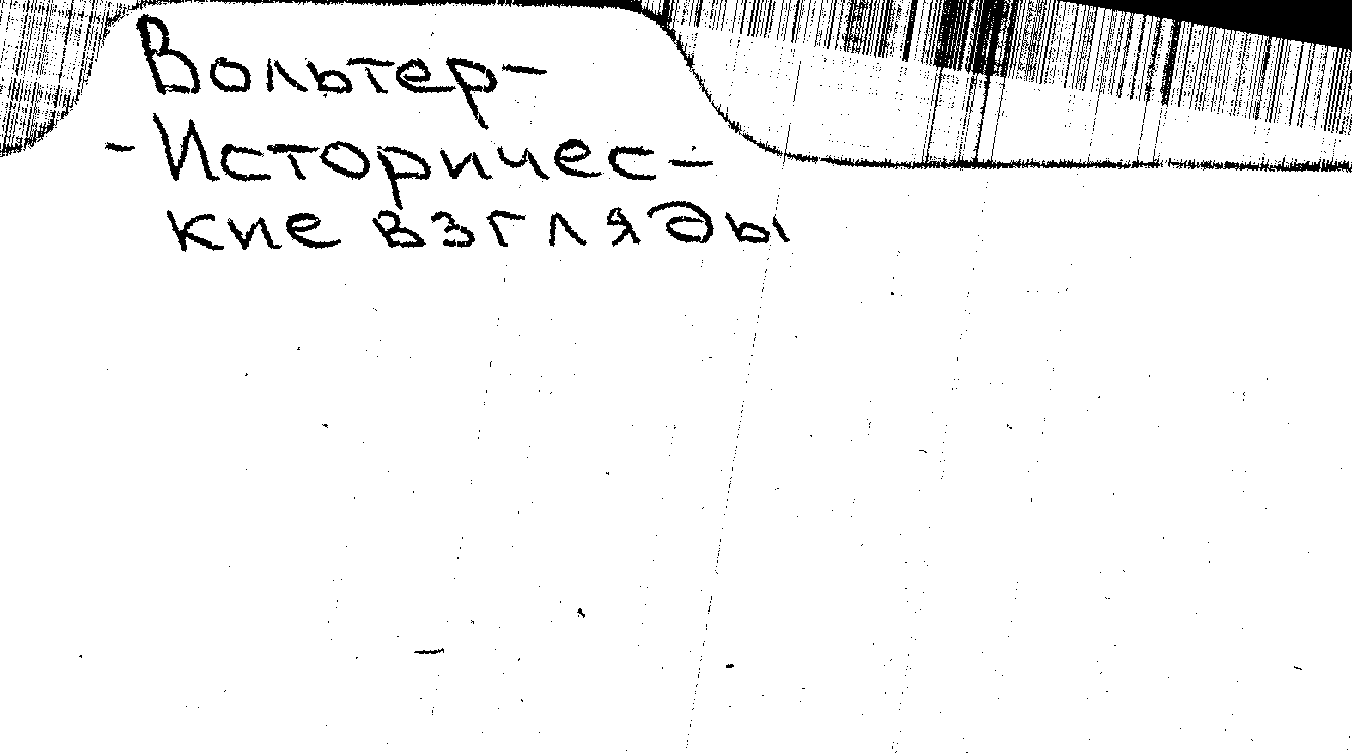 Вольтер-
-Историчес-
кие взгляды